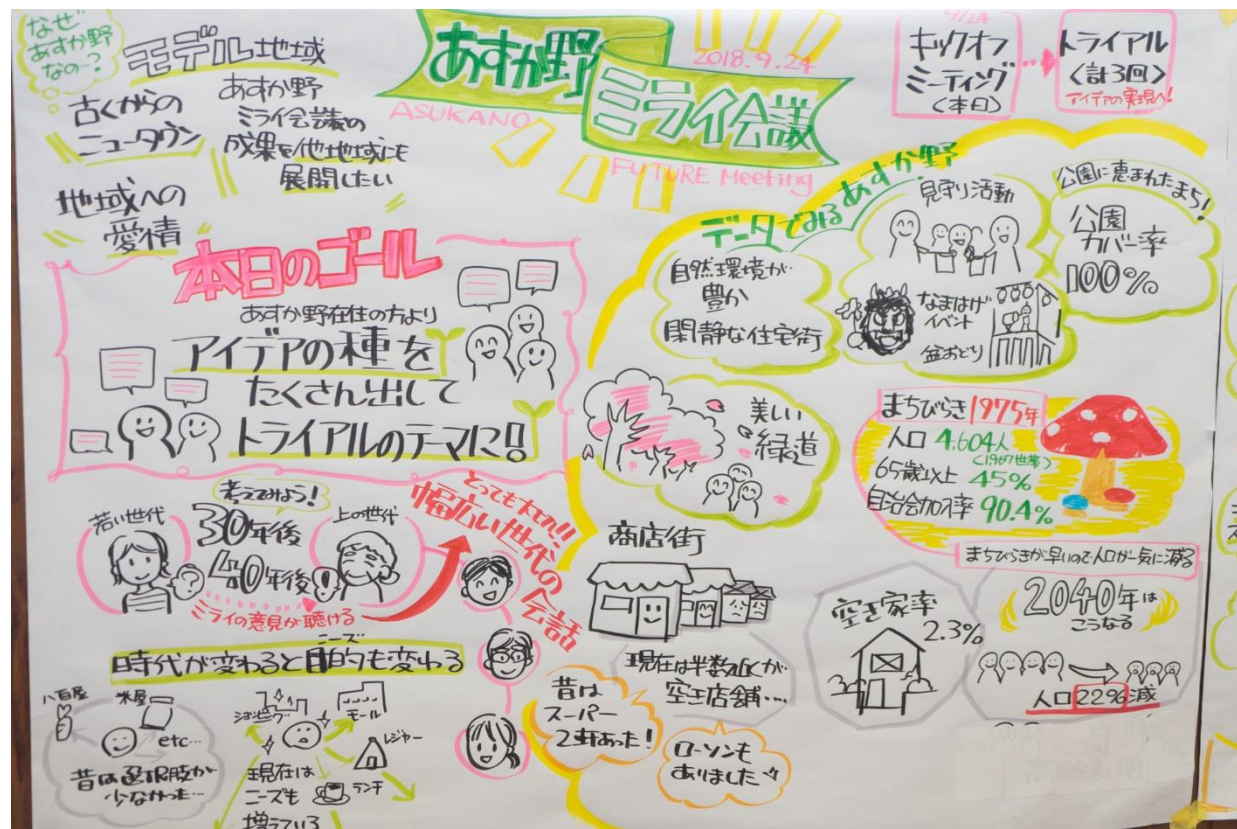 なぜ
あすか野
なの…?
モデル地域
古くからの
ニュータウン
地域への
愛情
あすか野
ミライ会議の
成果を他地域にも
展開したい
あすか野
ミライ会議
2018.9.24
ASUKANO
FUTURE Meeting
9/24
キックオフ
ミーティング
<本日>
トライアル
<計3回>
アイデアの実現へ!
本日のゴール
あすか野在住の方より
アイデアの種を
たくさん出して
トライアルのテーマに!!
データでみるあすか野
自然環境が
豊か
閑静な住宅街
見守り活動
なまはげ
イベント
盆おどり
公園に恵まれたまち!
公園
カバー率
100%
美しい
緑道
まちびらき1975年
人口 4.604人
(1967世帯)
65歳以上 45%
自治会加入率 90.4%
まちびらきが早いので人口が一気に減る
2040年は
こうなる
人口22%減
空き家率
2.3%
商店街
現在は半数近くが
空き店舗….
昔は
スーパー
2軒あった!
ローソンも
ありました
考えてみよう!
若い世代
30年後
40年後
上の世代
ミライの意見が聴ける
とっても大切!!
幅広い世代の
会話
ニーズ
時代が変わると目的も変わる
八百屋
米屋
etc…
昔は選択肢が
少なかった…
ショッピング
モール
レジャー
ランチ
現在は
ニーズも
増えている